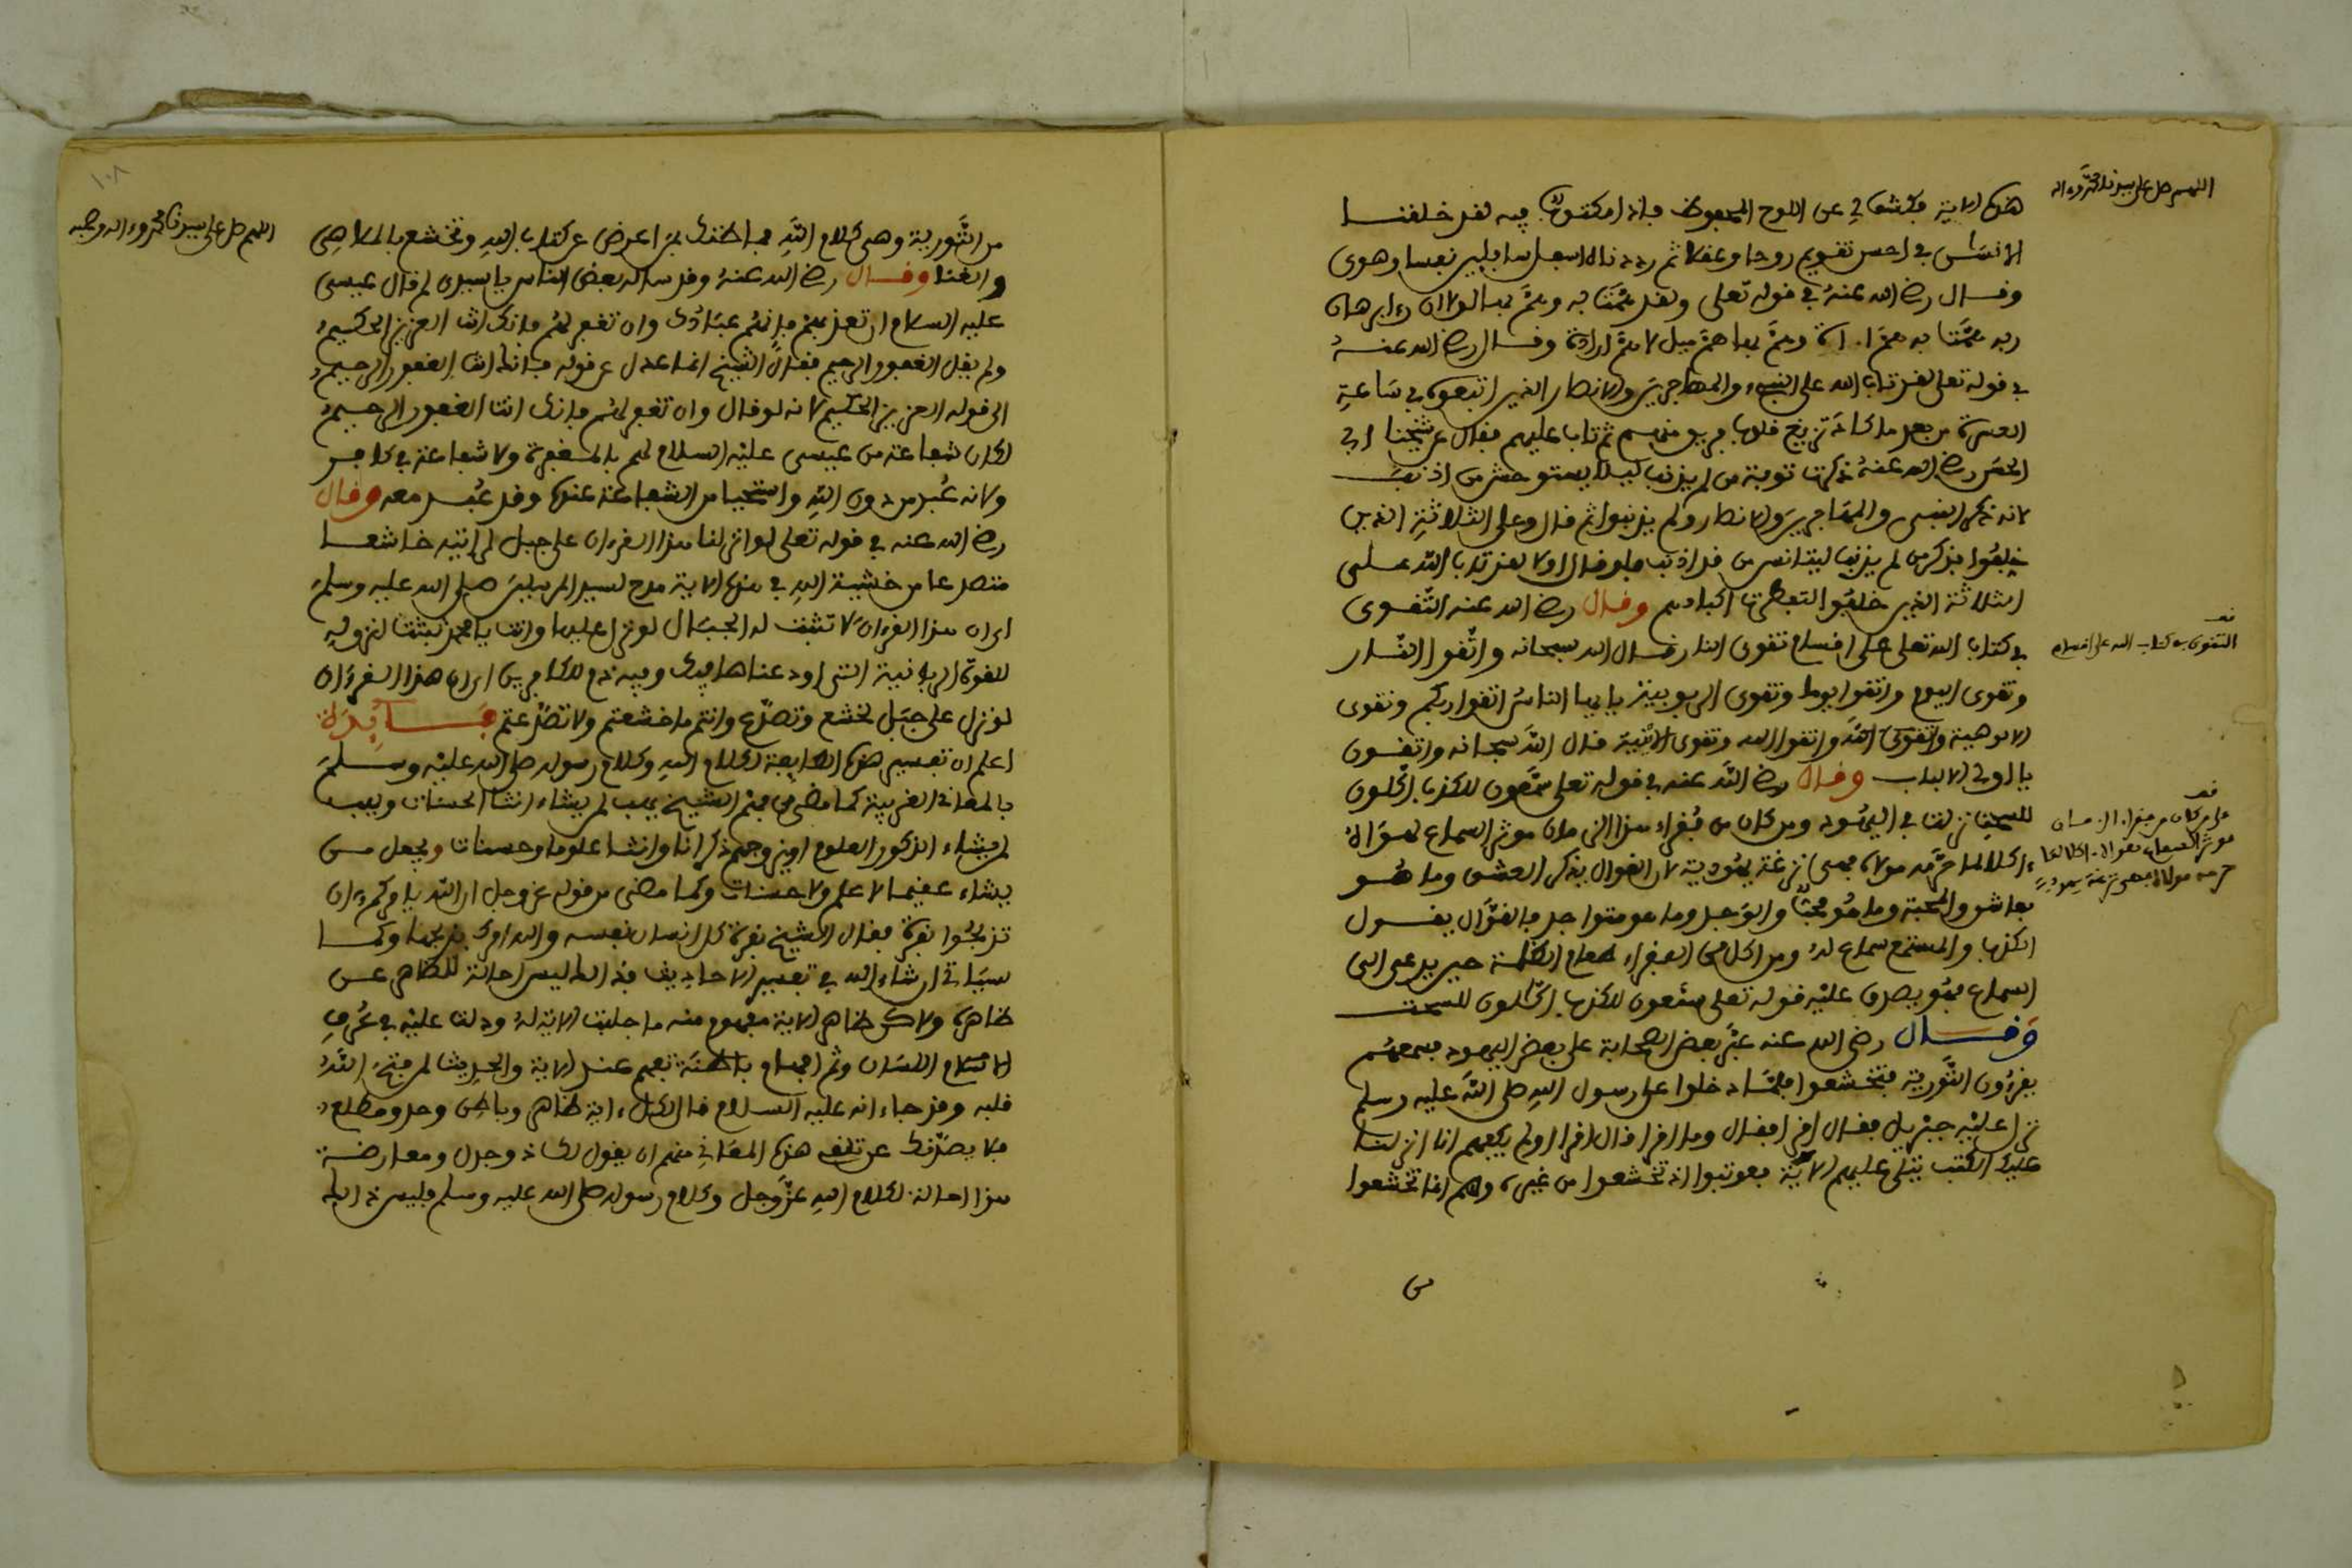 اللهم صل على سيدنا محمد وءاله
هذه الاية فكشف لي عن اللوح المحفوظ فاذا مكتوب فيه لقد خلقنا
الانسان في احسن تقويم روحا وعقلا ثم رددناه اسفل سافلين نفسا وهوى
وقال رضي الله عنه في قوله تعلى ولقد همت به وهم بها لولا ان رءا برهان
ربه همت به هم ارادة وهم بها هم ميل لا هم ارادة وقال رضي الله عنه
في قوله تعلى لقد تاب الله على النبيء والمهاجرين والانصار الذين اتبعوه في ساعة
العسرة من بعد ما كاد تزيغ قلوب فريق منهم ثم تاب عليهم فقال عن شيخنا ابي
الحسن رضي الله عنه ذكرت توبة من لم يذنب ليلا يستوحش من اذنب
لانه ذكر النبي والمهاجرين والانصار ولم يذنبوا ثم قال وعلى الثلاثة الذين
خلفوا فذكر من لم يذنب ليتانس من قد اذنب فلو قال اولا لقد تاب الله على
الثلاثة الذين خلفوا لتفطرت اكبادهم وقال رضي الله عنه التقوى
في كتاب الله تعلى على اقسام تقوى النار قال الله سبحانه واتقوا النار
وتقوى اليوم واتقوا يوما وتقوى الربوبية يا ايها الناس اتقوا ربكم وتقوى
الالوهية وتقوى الله واتقوا الله وتقوى الانية قال الله سبحانه واتقون
يا اولي الالباب وقال رضي الله عنه في قوله تعلى سمعون للكذب اكلون
للسحت نزلت في اليهود ومن كان من فقراء هذا الزمان موثر السماع لهواه
ءاكلا لما حرمه مولاه فهي نزغة يهودية لان القوال يذكر العشق وما هو
بعاشق والمحبة وما هو محب والوجد وما هو متواجد فالقوال يقول
الكذب والمستمع سماع له ومن اكل من الفقراء طعام الظلمة حين يدعى الى
السماع فهو يصدق عليه قوله تعلى سمعون للكذب اكلون للسحت
وقال رضي الله عنه عثر بعض الصحابة على بعض اليهود فسمعهم
يقرءون التورية فتخشعوا فلما دخلوا على رسول الله صلى الله عليه وسلم
نزل عليه جبريل فقال اقرا فقال وما اقرا قال اقرا اولم يكفهم انا انزلنا
عليك الكتب يتلى عليهم الاية فعوتبوا اذ تخشعوا من غيره وهم انما تخشعوا
من
التقوى في كتاب الله على اقسام
ما من كان من فقراء الزمان
موثر السماع لهواه ءاكلا لما
حرمه مولاه فهي نزغة يهودية
١٠٨
اللهم صل على سيدنا محمد وءاله وصحبه
من التورية وهي كلام الله فما ظنك بمن اعرض عن كتاب الله وتخشع بالملاهي
والغنا وقال رضي الله عنه وقد ساله بعض الناس يا سيدي لم قال عيسى
عليه السلام ان تعذبهم فانهم عبادك وان تغفر لهم فانك انت العزيز الحكيم
ولم يقل الغفور الرحيم فقال الشيخ انما عدل عن قوله فانك انت الغفور الرحيم
الى قوله العزيز الحكيم لانه لو قال وان تغفر لهم فانك انت الغفور الرحيم
لكان شفاعة من عيسى عليه السلام لهم بالمغفرة ولا شفاعة في كافر
ولانه عبد من دون الله واستحيا من الشفاعة عنده وقد عبد معه وقال
رضي الله عنه في قوله تعلى لو انزلنا هذا القرءان على جبل لرايته خاشعا
متصدعا من خشية الله في هذه الاية مدح لسيد المرسلين صلى الله عليه وسلم
اي ان هذا القرءان لا تثبت له الجبال لو نزل عليها وانت يا محمد تثبت لنزوله
للقوة الربانية التي اودعناها فيك وفيه ذم للكافرين اي ان هذا القرءان
لو نزل على جبل لخشع وتصدع وانتم ما خشعتم ولا تصدعتم فايدة
اعلم ان تفسير هذه الطايفة لكلام الله وكلام رسوله صلى الله عليه وسلم
بالمعاني الغريبة كما مضى من فهم الشيخ يهب لمن يشاء اناثا الحسنات ويهب
لمن يشاء الذكور العلوم او يزوجهم ذكرانا واناثا علوما وحسنات ويجعل من
يشاء عقيما لا علم ولا حسنات وكما مضى من قوله عز وجل ان الله يامركم ان
تذبحوا بقرة فقال الشيخ بقرة كل انسان نفسه والله امرك بذبحها وكما
سياتي ان شاء الله في تفسير الاحاديث فذلك ليس احالة للظاهر عن
ظاهره ولاكن ظاهر الاية مفهوم منه ما جلبت الاية له ودلت عليه في عرف
اللسان وثم افهام باطنة تفهم عند الاية والحديث لمن فتح الله
قلبه وقد جاء انه عليه السلام قال لكل ءاية ظاهر وباطن وحد ومطلع
فلا يصدنك عن تلقي هذه المعاني منهم ان يقول لك ذو جدل ومعارضة
هذا احالة لكلام الله عز وجل وكلام رسوله صلى الله عليه وسلم فليس ذلك